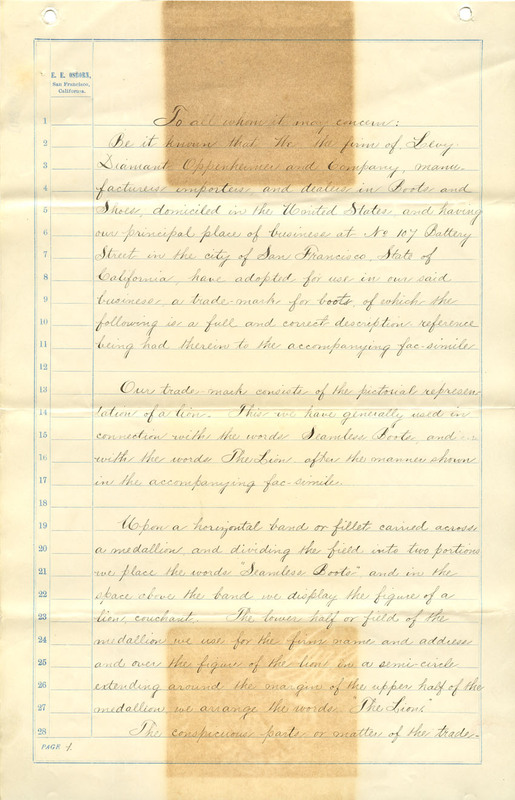 E. E. OSBORN,
San Francisco,
California.
1 To all whom it may concern:
2 Be it known that We the firm of Levy
3 Diamant Oppenheimer and Company, manu-
4 facturers importers and dealers in Boots and
5 Shoes, domiciled in the United States and having
6 our principal place of business at No 107 Battery
7 Street in the city of San Francisco, State of
8 California, have adopted for use in our said
9 business, a trade-mark for boots, of which the
10 following is a full and correct description reference
11 being had therein to the accompanying fac-simile
12
13 Our trade-mark consists of the pictorial represen-
14 tation of a lion. This we have generally used in
15 connection with the words Seamless Boots, and
16 with the words The Lion after the manner shown
17 in the accompanying fac-simile.
18
19 Upon a horizontal band or fillet carried across
20 a medallion, and dividing the field into two portions
21 we place the words "Seamless Boots" and in the
22 space above the band we display the figure of a
23 lion, couchant. The lower half or field of the
24 medallion we use for the firm name and address
25 and over the figure of the lion in a semi-circle
26 extending around the margin of the upper half of the
27 medallion we arrange the words "The Lion"
28 The conspicuous parts or matter of the trade-
PAGE 1.